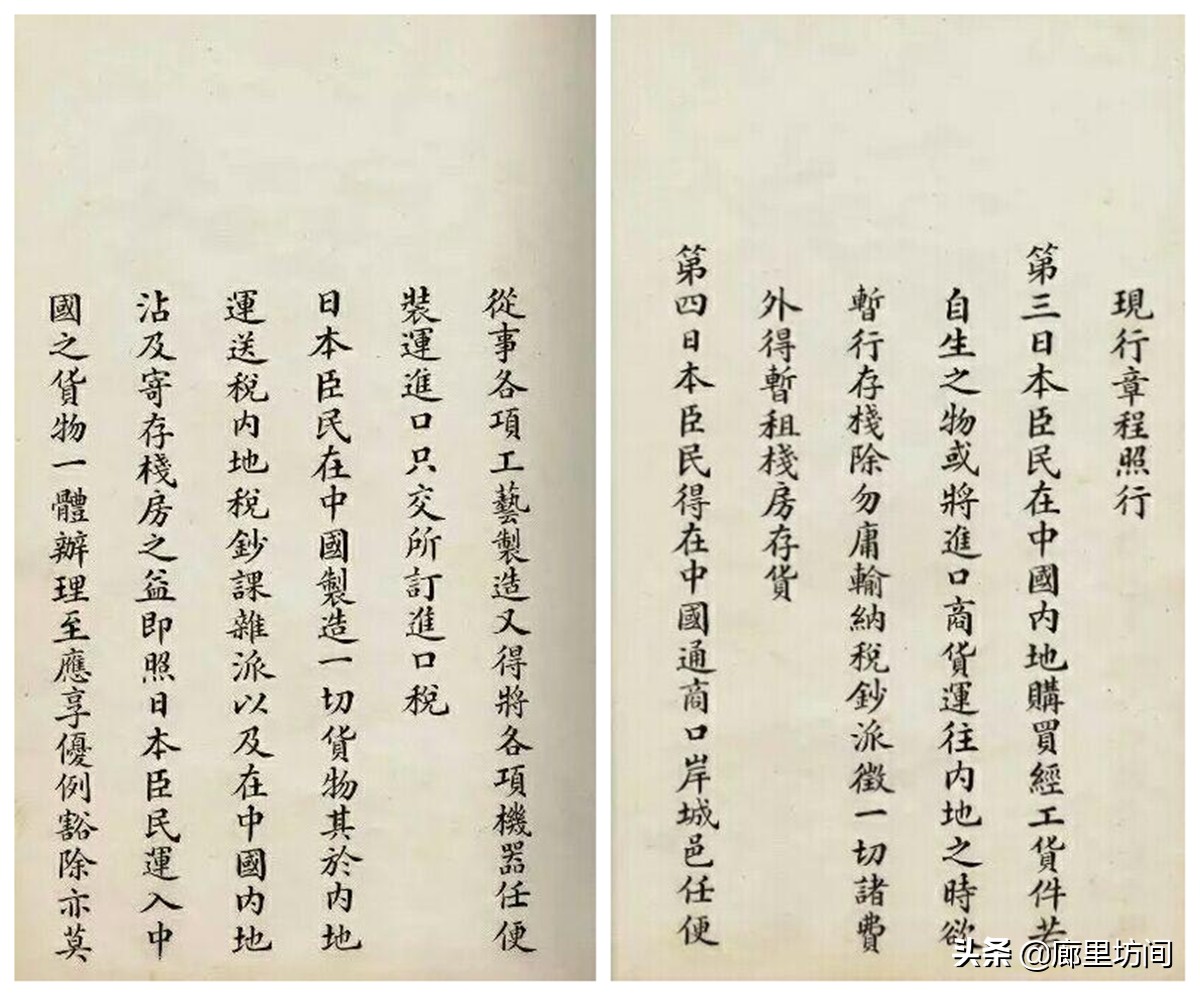 現行章程照行
第三日本臣民在中國內地購買經工貨件若
自生之物或將進口商貨運往內地之時欲
暫行存棧除勿庸輸納稅鈔派徵一切諸費
外得暫租棧房存貨
第四日本臣民得在中國通商口岸城邑任便
從事各項工藝製造又得將各項機器任便
裝運進口只交所訂進口稅
日本臣民在中國製造一切貨物其於內地
運送稅內地稅鈔課雜派以及在中國內地
沾及寄存棧房之益即照日本臣民運入中
國之貨物一體辦理至應享優例豁除亦莫
头条 @廊里坊间